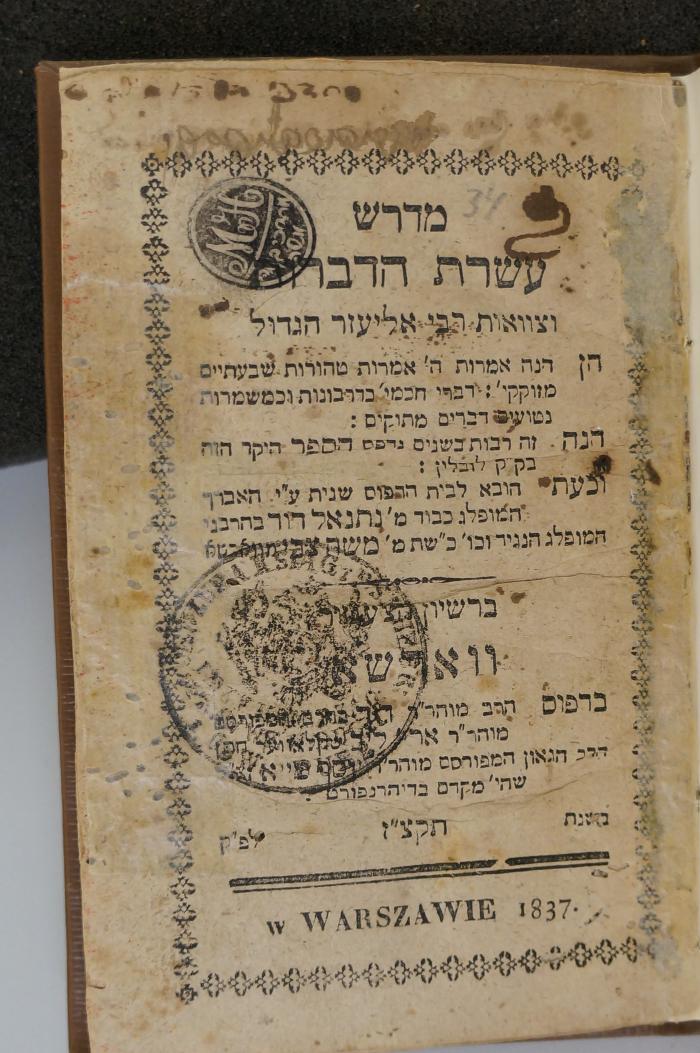 34
מדרש
עשרת הדברות
וצוואות רבי אליעזר הגדול
הן הנה אמרות ה' אמרות טהורות שבעתיים
מזוקקי': דברי חכמי' כדרבונות וכמשמרות
נטועים דברים מתוקים :
הנה זה רבות בשנים נדפס הספר היקר הזה
בק"ק לובלין :
וכעת הובא לבית הדפוס שנית ע"י האברך
המופלג כבוד מ' נתנאל דוד בהרבני
המופלג הנגיד וכו' כ"שת מ' משה צבי
ברשיון הצענזור
ווארשא
בדפוס הרב מוהר"ר
מוהר"ר
הרב הגאון המפורסם מוהר"ר
שהי' מקדם בדיהרנפורט
בשנת תקצ"ז לפ"ק
w WARSZAWIE 1837.